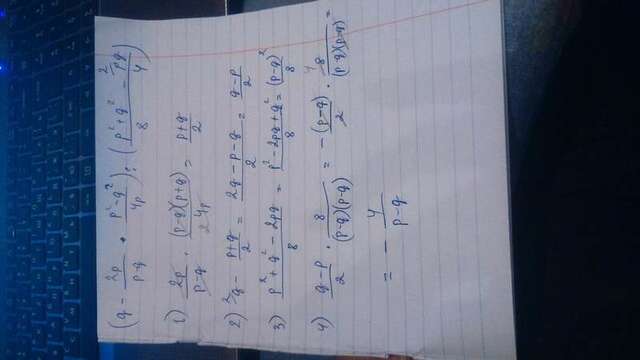 (q - 2p/p-q · p²-q²/4p) : (p²+q²/8 - pq/4 ²)
1) 2p/p-q · (p-q)(p+q)/2 4p = p+q/2
2) ²q - p+q/2 = 2q-p-q/2 = q-p/2
3) p²+q²-2pq/8 = p²-2pq+q²/8 = (p-q)²/8
4) q-p/2 · 8/(p-q)(p-q) = - (p-q)/2 · 8 4/(p-q)(p-q) =
= - 4/p-q